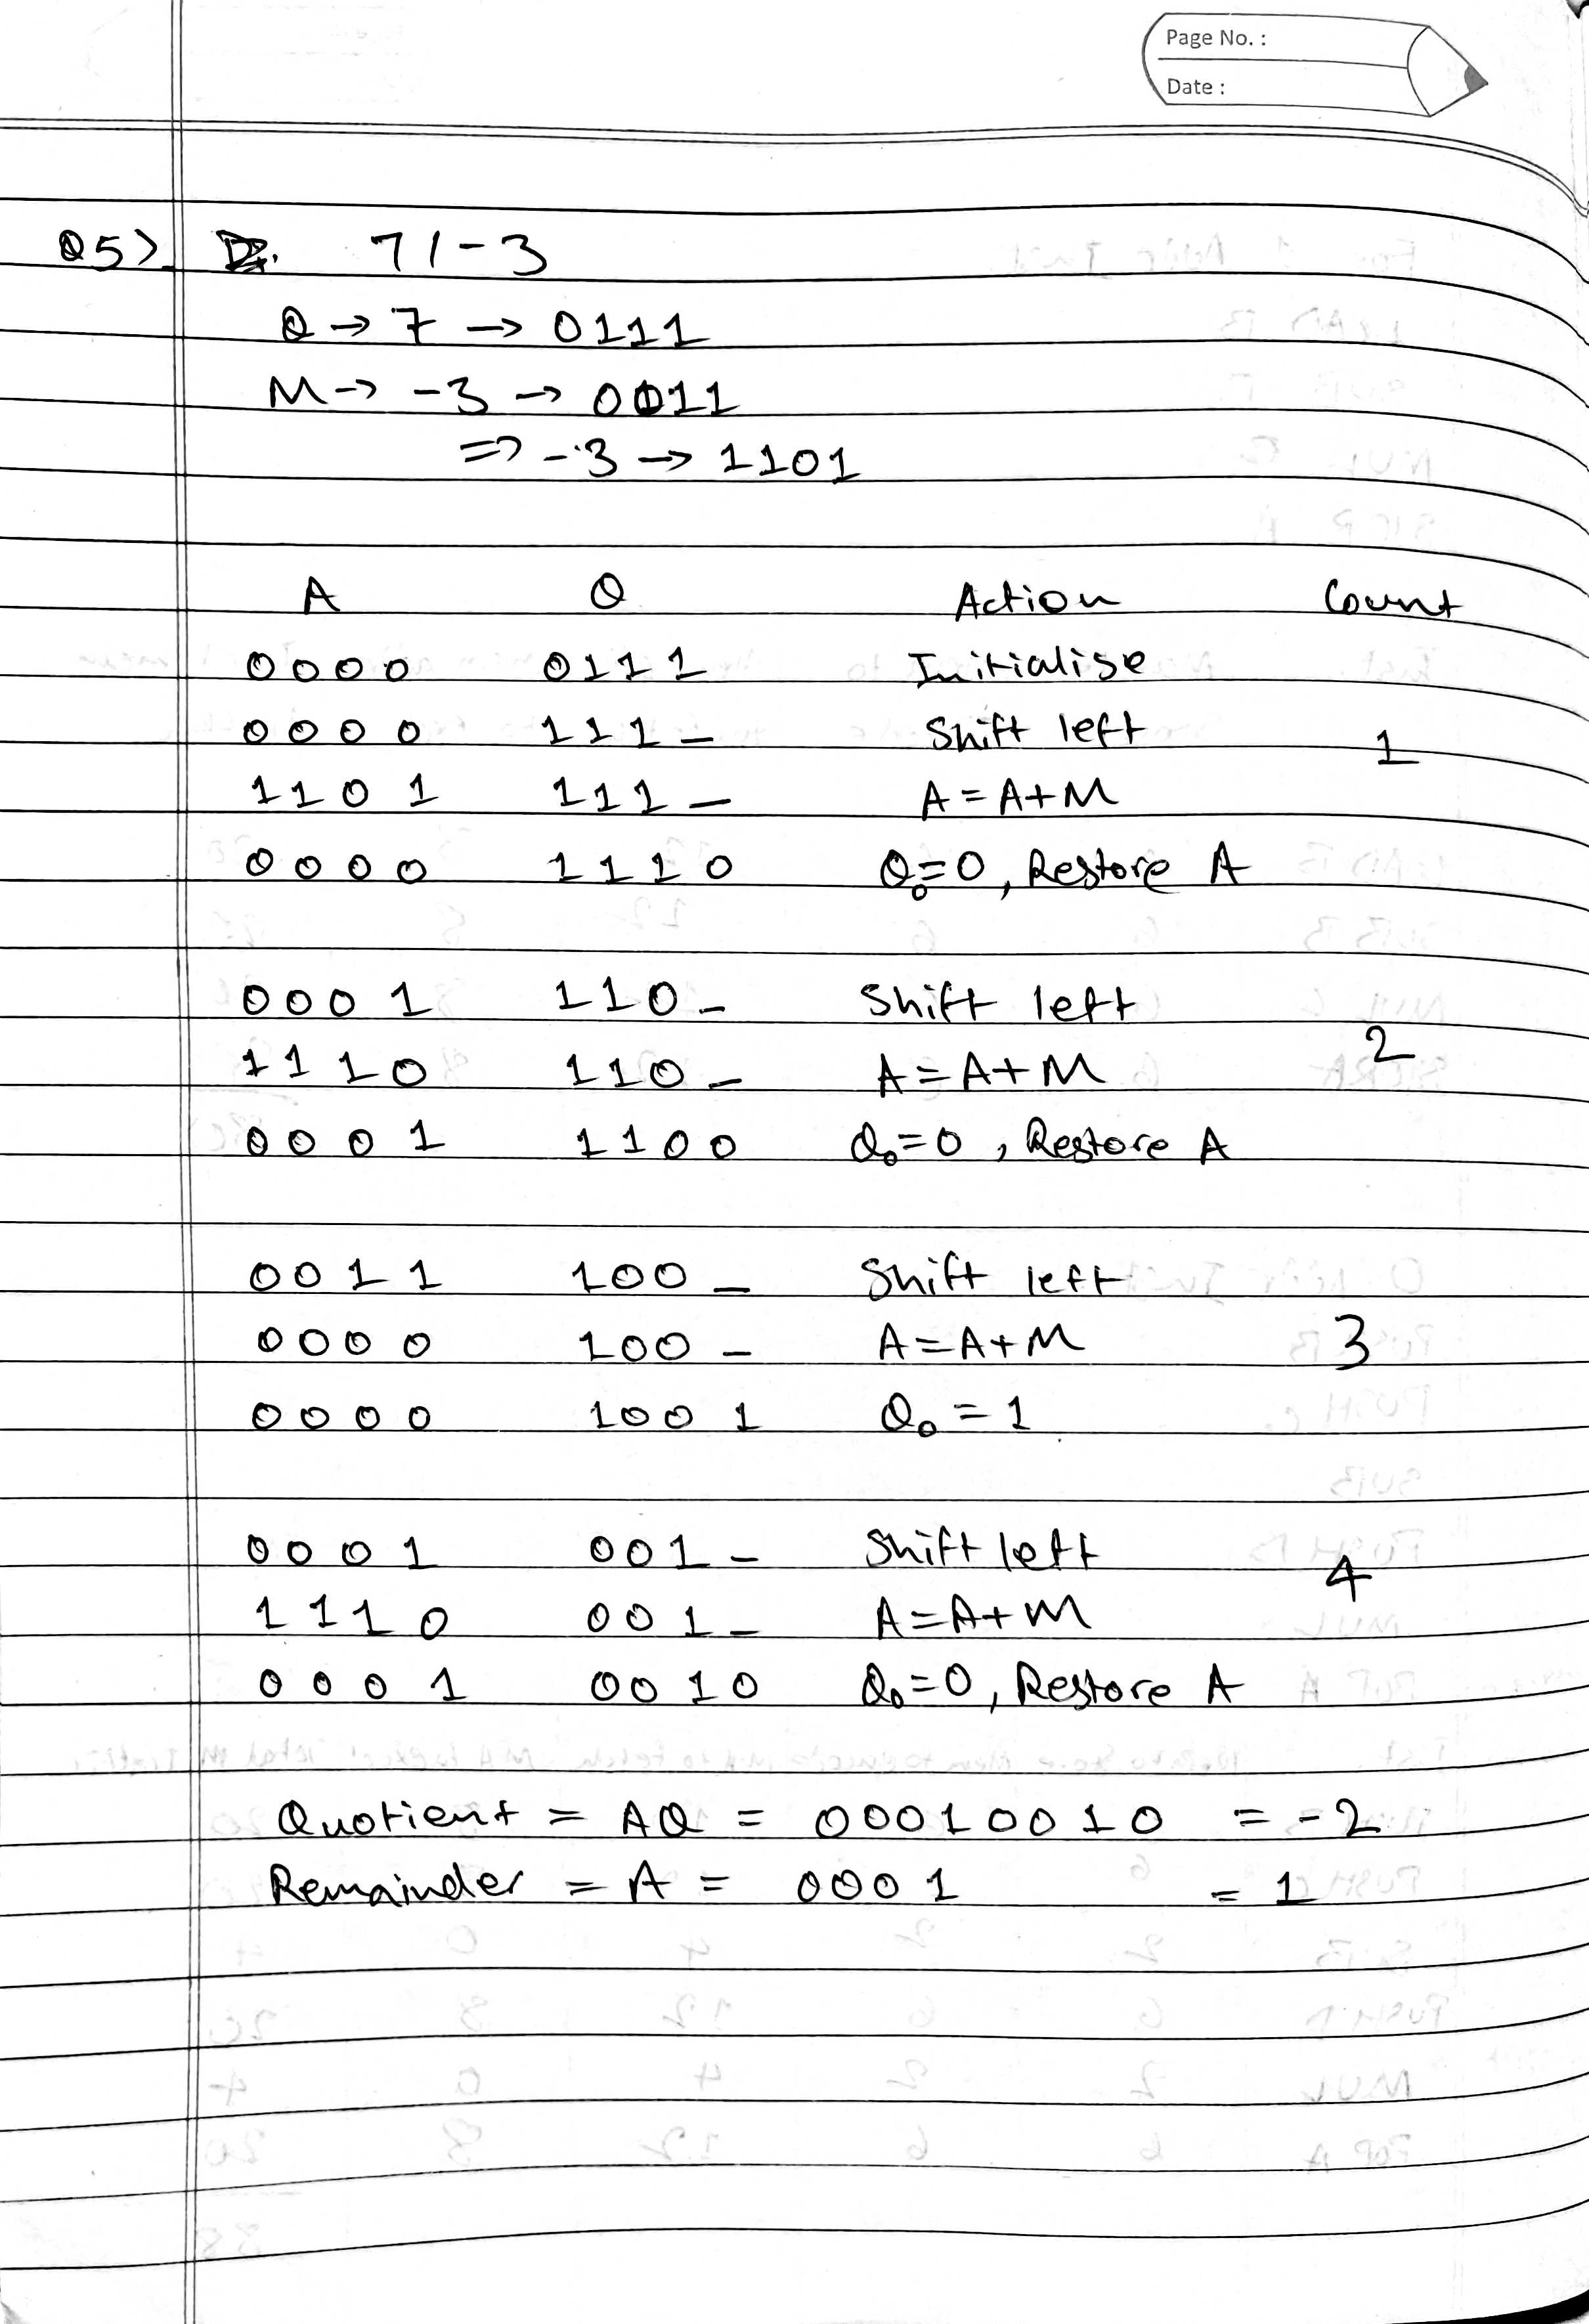 Page No. :
Date :
Q5> 7/-3
Q → 7 → 0111
M → -3 → 0011
=> -3 → 1101
A Q Action Count
0000 0111 Initialise
0000 111_ Shift left 1
1101 111_ A=A+M
0000 1110 Q₀=0, Restore A
0001 110_ Shift left
1110 110_ A=A+M 2
0001 1100 Q₀=0, Restore A
0011 100_ Shift left
0000 100_ A=A+M 3
0000 1001 Q₀=1
0001 001_ Shift left 4
1110 001_ A=A+M
0001 0010 Q₀=0, Restore A
Quotient = AQ = 00010010 = -2
Remainder = A = 0001 = 1